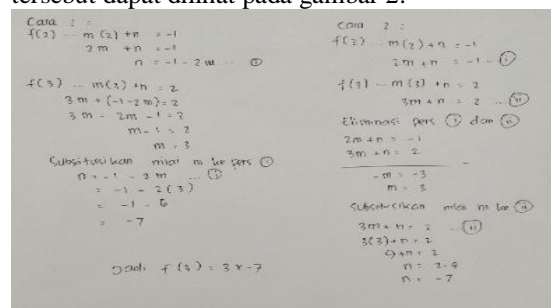 tersebut dapat dilihat pada gambar 2.
Cara 1 :
f(2) ... m (2) + n = -1
2 m + n = -1
n = -1 - 2 m ... ①
f(3) ... m(3) + n = 2
3 m + (-1 - 2 m) = 2
3 m - 2m - 1 = 2
m - 1 = 2
m = 3
Substitusikan nilai m ke pers ①
n = -1 - 2 m ... ①
= -1 - 2 (3)
= -1 - 6
= -7
Jadi f (x) = 3x - 7
Cara 2 :
f(2) ... m(2) + n = -1
2m + n = -1 ... ⓘ
f(3) ... m (3) + n = 2
3m + n = 2 ... ⓘⓘ
Eliminasi pers ⓘ dan ⓘⓘ
2m + n = -1
3m + n = 2
-m = -3
m = 3
Substitusikan nilai m ke ⓘⓘ
3m + n = 2 ... ⓘⓘ
3(3) + n = 2
9 + n = 2
n = 2 - 9
n = -7